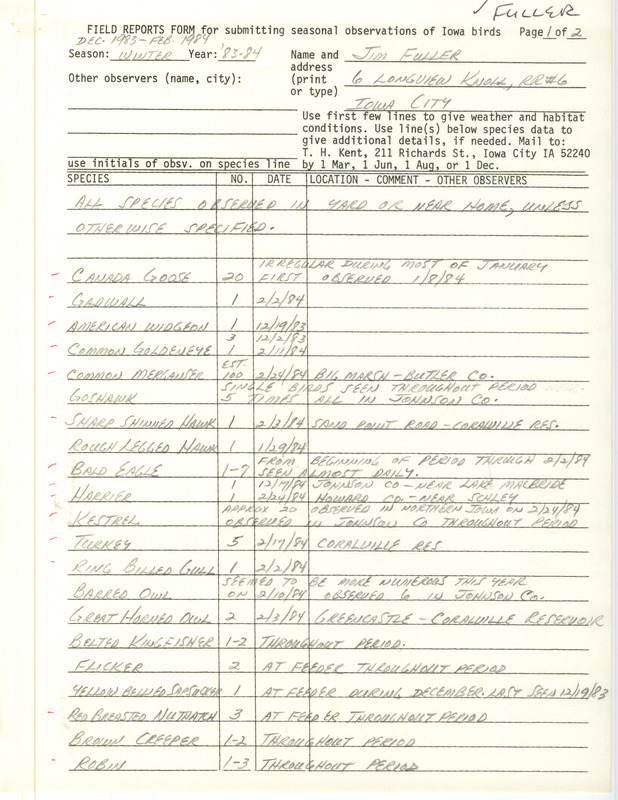 FULLER
FIELD REPORTS FORM for submitting seasonal observations of Iowa birds Page 1 of 2
DEC. 1983-FEB. 1984
Season: WINTER Year: '83-84 Name and JIM FULLER
address
Other observers (name, city): (print 6 LONGVIEW KNOLL, RR#6
or type)
IOWA CITY
Use first few lines to give weather and habitat
conditions. Use line(s) below species data to
give additional details, if needed. Mail to:
T. H. Kent, 211 Richards St., Iowa City IA 52240
use initials of obsv. on species line by 1 Mar, 1 Jun, 1 Aug, or 1 Dec.
SPECIES NO. DATE LOCATION - COMMENT - OTHER OBSERVERS
ALL SPECIES OBSERVED IN YARD OR NEAR HOME, UNLESS
OTHERWISE SPECIFIED.
IRREGULAR DURING MOST OF JANUARY
CANADA GOOSE 20 FIRST OBSERVED 1/8/84
GADWALL 1 2/2/84
AMERICAN WIDGEON 1 12/19/83
3 12/2/83
COMMON GOLDENEYE 1 2/11/84
EST.
COMMON MERGANSER 100 2/24/84 BIG MARSH - BUTLER CO.
SINGLE BIRDS SEEN THROUGHOUT PERIOD
GOSHAWK 5 TIMES ALL IN JOHNSON CO.
SHARP SHINNED HAWK 1 2/3/84 SAND POINT ROAD - CORALVILLE RES.
ROUGH LEGGED HAWK 1 1/29/84
FROM BEGINNING OF PERIOD THROUGH 2/2/84
BALD EAGLE 1-7 SEEN ALMOST DAILY.
1 12/17/84 JOHNSON CO - NEAR LAKE MACBRIDE
HARRIER 1 2/24/84 HOWARD CO. - NEAR SCHLEY
APPROX 20 OBSERVED IN NORTHERN IOWA ON 2/24/84
KESTREL OBSERVED IN JOHNSON CO THROUGHOUT PERIOD
TURKEY 5 2/17/84 CORALVILLE RES.
RING BILLED GULL 1 2/2/84
SEEMED TO BE MORE NUMEROUS THIS YEAR
BARRED OWL ON 2/10/84 OBSERVED 6 IN JOHNSON CO.
GREAT HORNED OWL 2 2/3/84 GREENCASTLE - CORALVILLE RESERVOIR
BELTED KINGFISHER 1-2 THROUGHOUT PERIOD.
FLICKER 2 AT FEEDER THROUGHOUT PERIOD
YELLOW BELLIED SAPSUCKER 1 AT FEEDER DURING DECEMBER. LAST SEEN 12/19/83
RED BREASTED NUTHATCH 3 AT FEEDER THROUGHOUT PERIOD
BROWN CREEPER 1-2 THROUGHOUT PERIOD
ROBIN 1-3 THROUGHOUT PERIOD